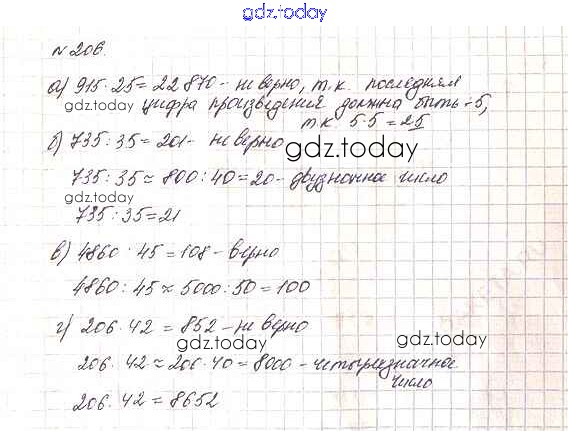 gdz.today
№ 206.
а) 915 · 25 = 22 870 - не верно, т.к. последняя
gdz.today
цифра произведения должна быть - 5,
т.к. 5·5 = 25
б) 735 : 35 = 201 - не верно
gdz.today
735 : 35 ≈ 800 : 40 = 20 - двузначное число
gdz.today
735 : 35 = 21
в) 4860 : 45 = 108 - верно
4860 : 45 ≈ 5000 : 50 = 100
г) 206 · 42 = 852 - не верно
gdz.today
gdz.today
206 · 42 ≈ 200 · 40 = 8000 - четырехзначное
число
206 · 42 = 8652